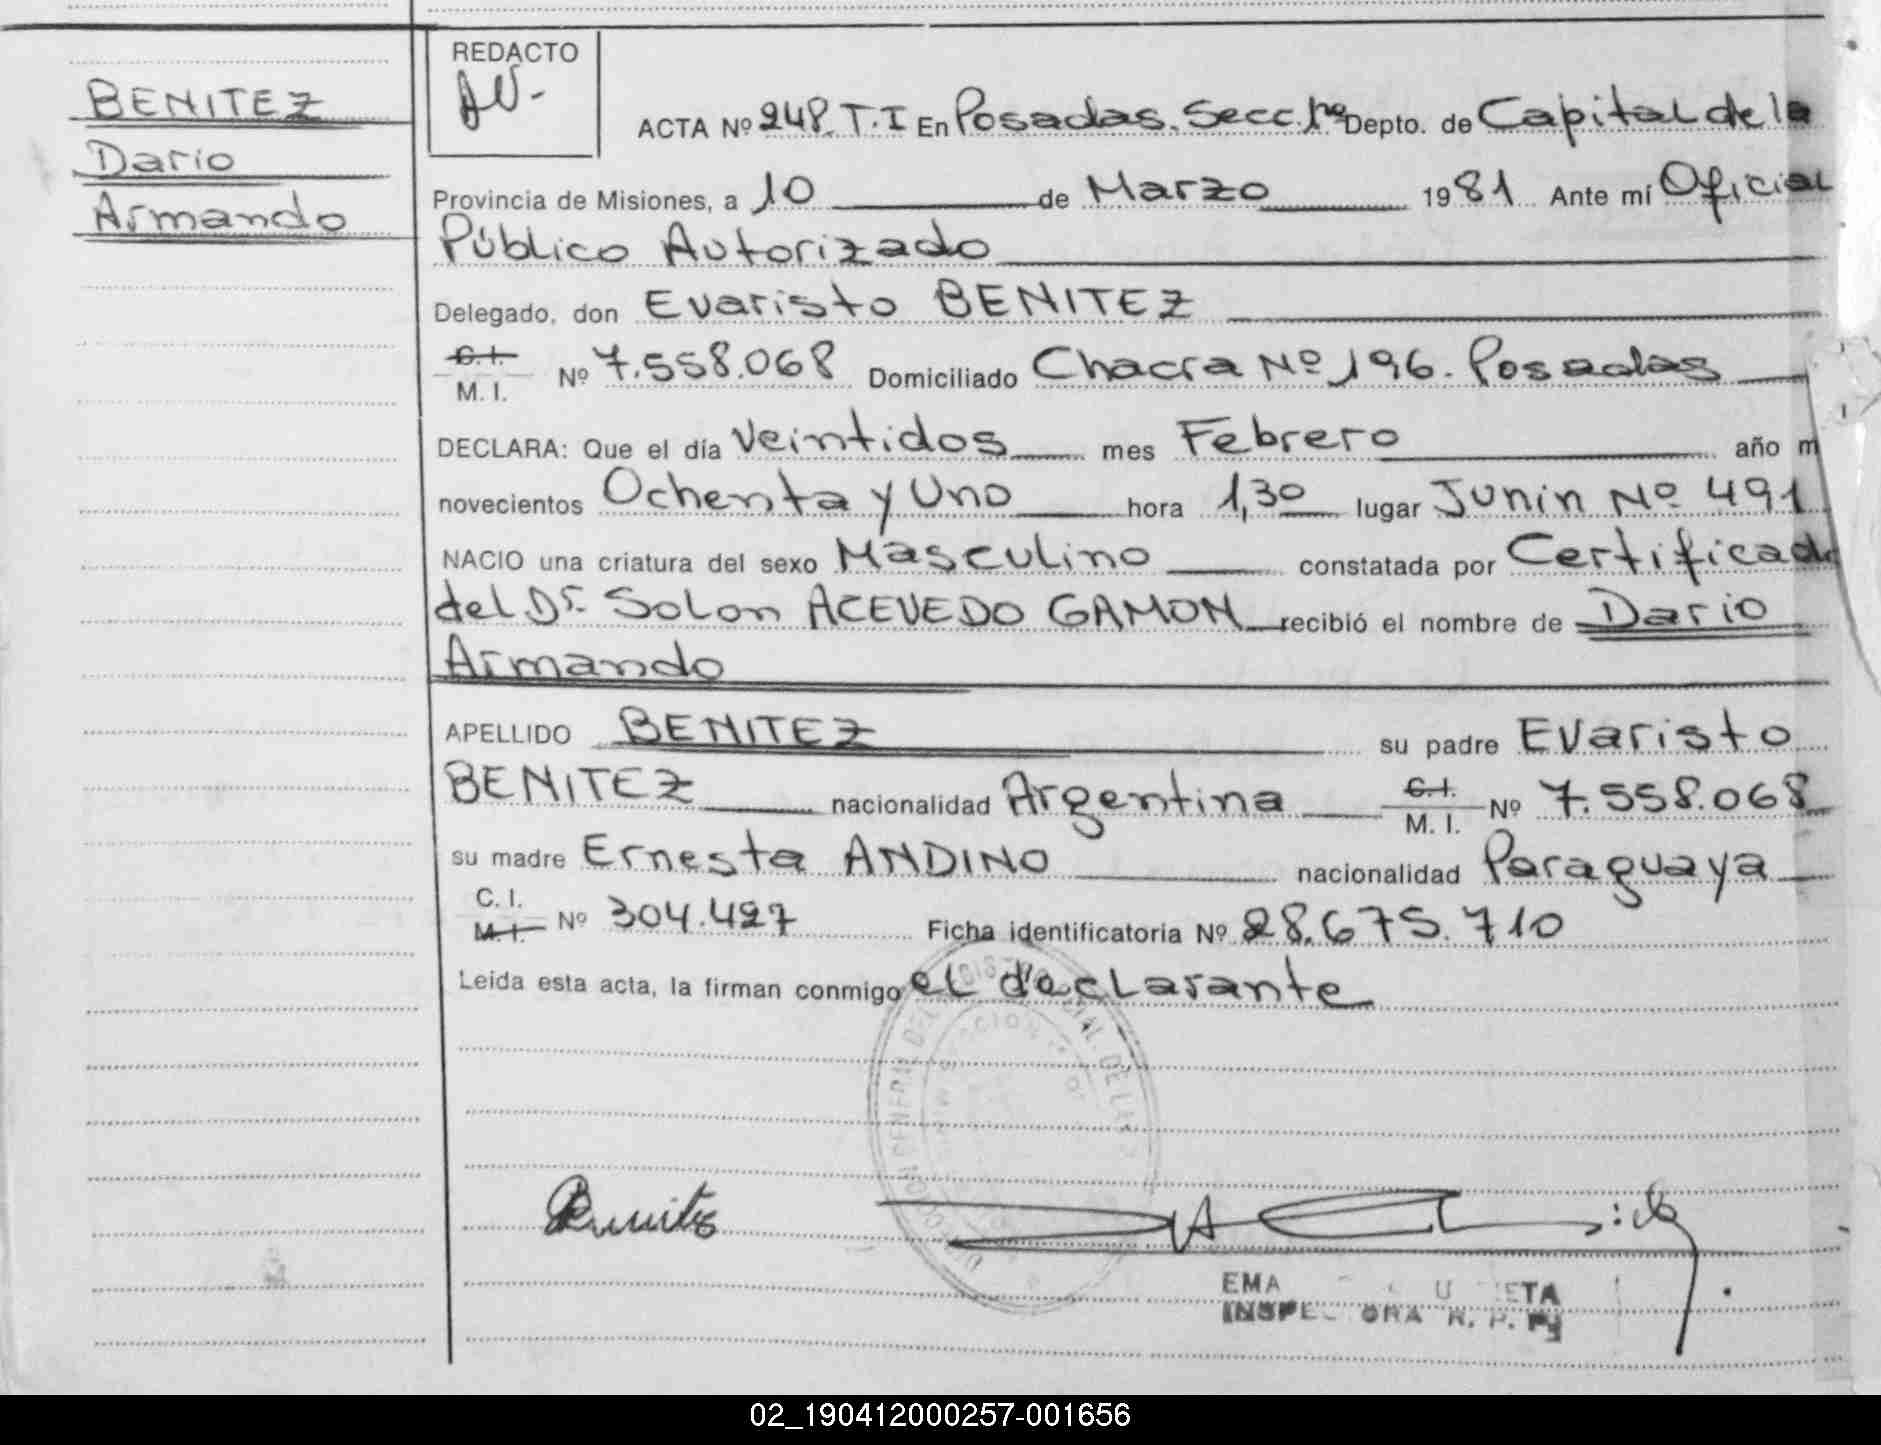 BENITEZ
Dario
Armando
REDACTO
ACTA Nº 248. T.I En Posadas. Secc. 1ra Depto. de Capital de la
Provincia de Misiones, a 10 de Marzo 1981 Ante mí Oficial
Público Autorizado
Delegado, don Evaristo BENITEZ
C.I.
M. I. Nº 7.558.068 Domiciliado Chacra Nº 196. Posadas
DECLARA: Que el día Veintidos mes Febrero año m
novecientos Ochenta y Uno hora 1,30 lugar Junin Nº 491
NACIO una criatura del sexo Masculino constatada por Certificado
del Dr. Solon ACEVEDO GAMON recibió el nombre de Dario
Armando
APELLIDO BENITEZ su padre Evaristo
BENITEZ nacionalidad Argentina C.I. M. I. Nº 7.558.068
su madre Ernesta ANDINO nacionalidad Paraguaya
C. I.
M.I. Nº 304.427 Ficha identificatoria Nº 28.675.710
Leída esta acta, la firman conmigo el declarante
Benitez
EMA
02_190412000257-001656